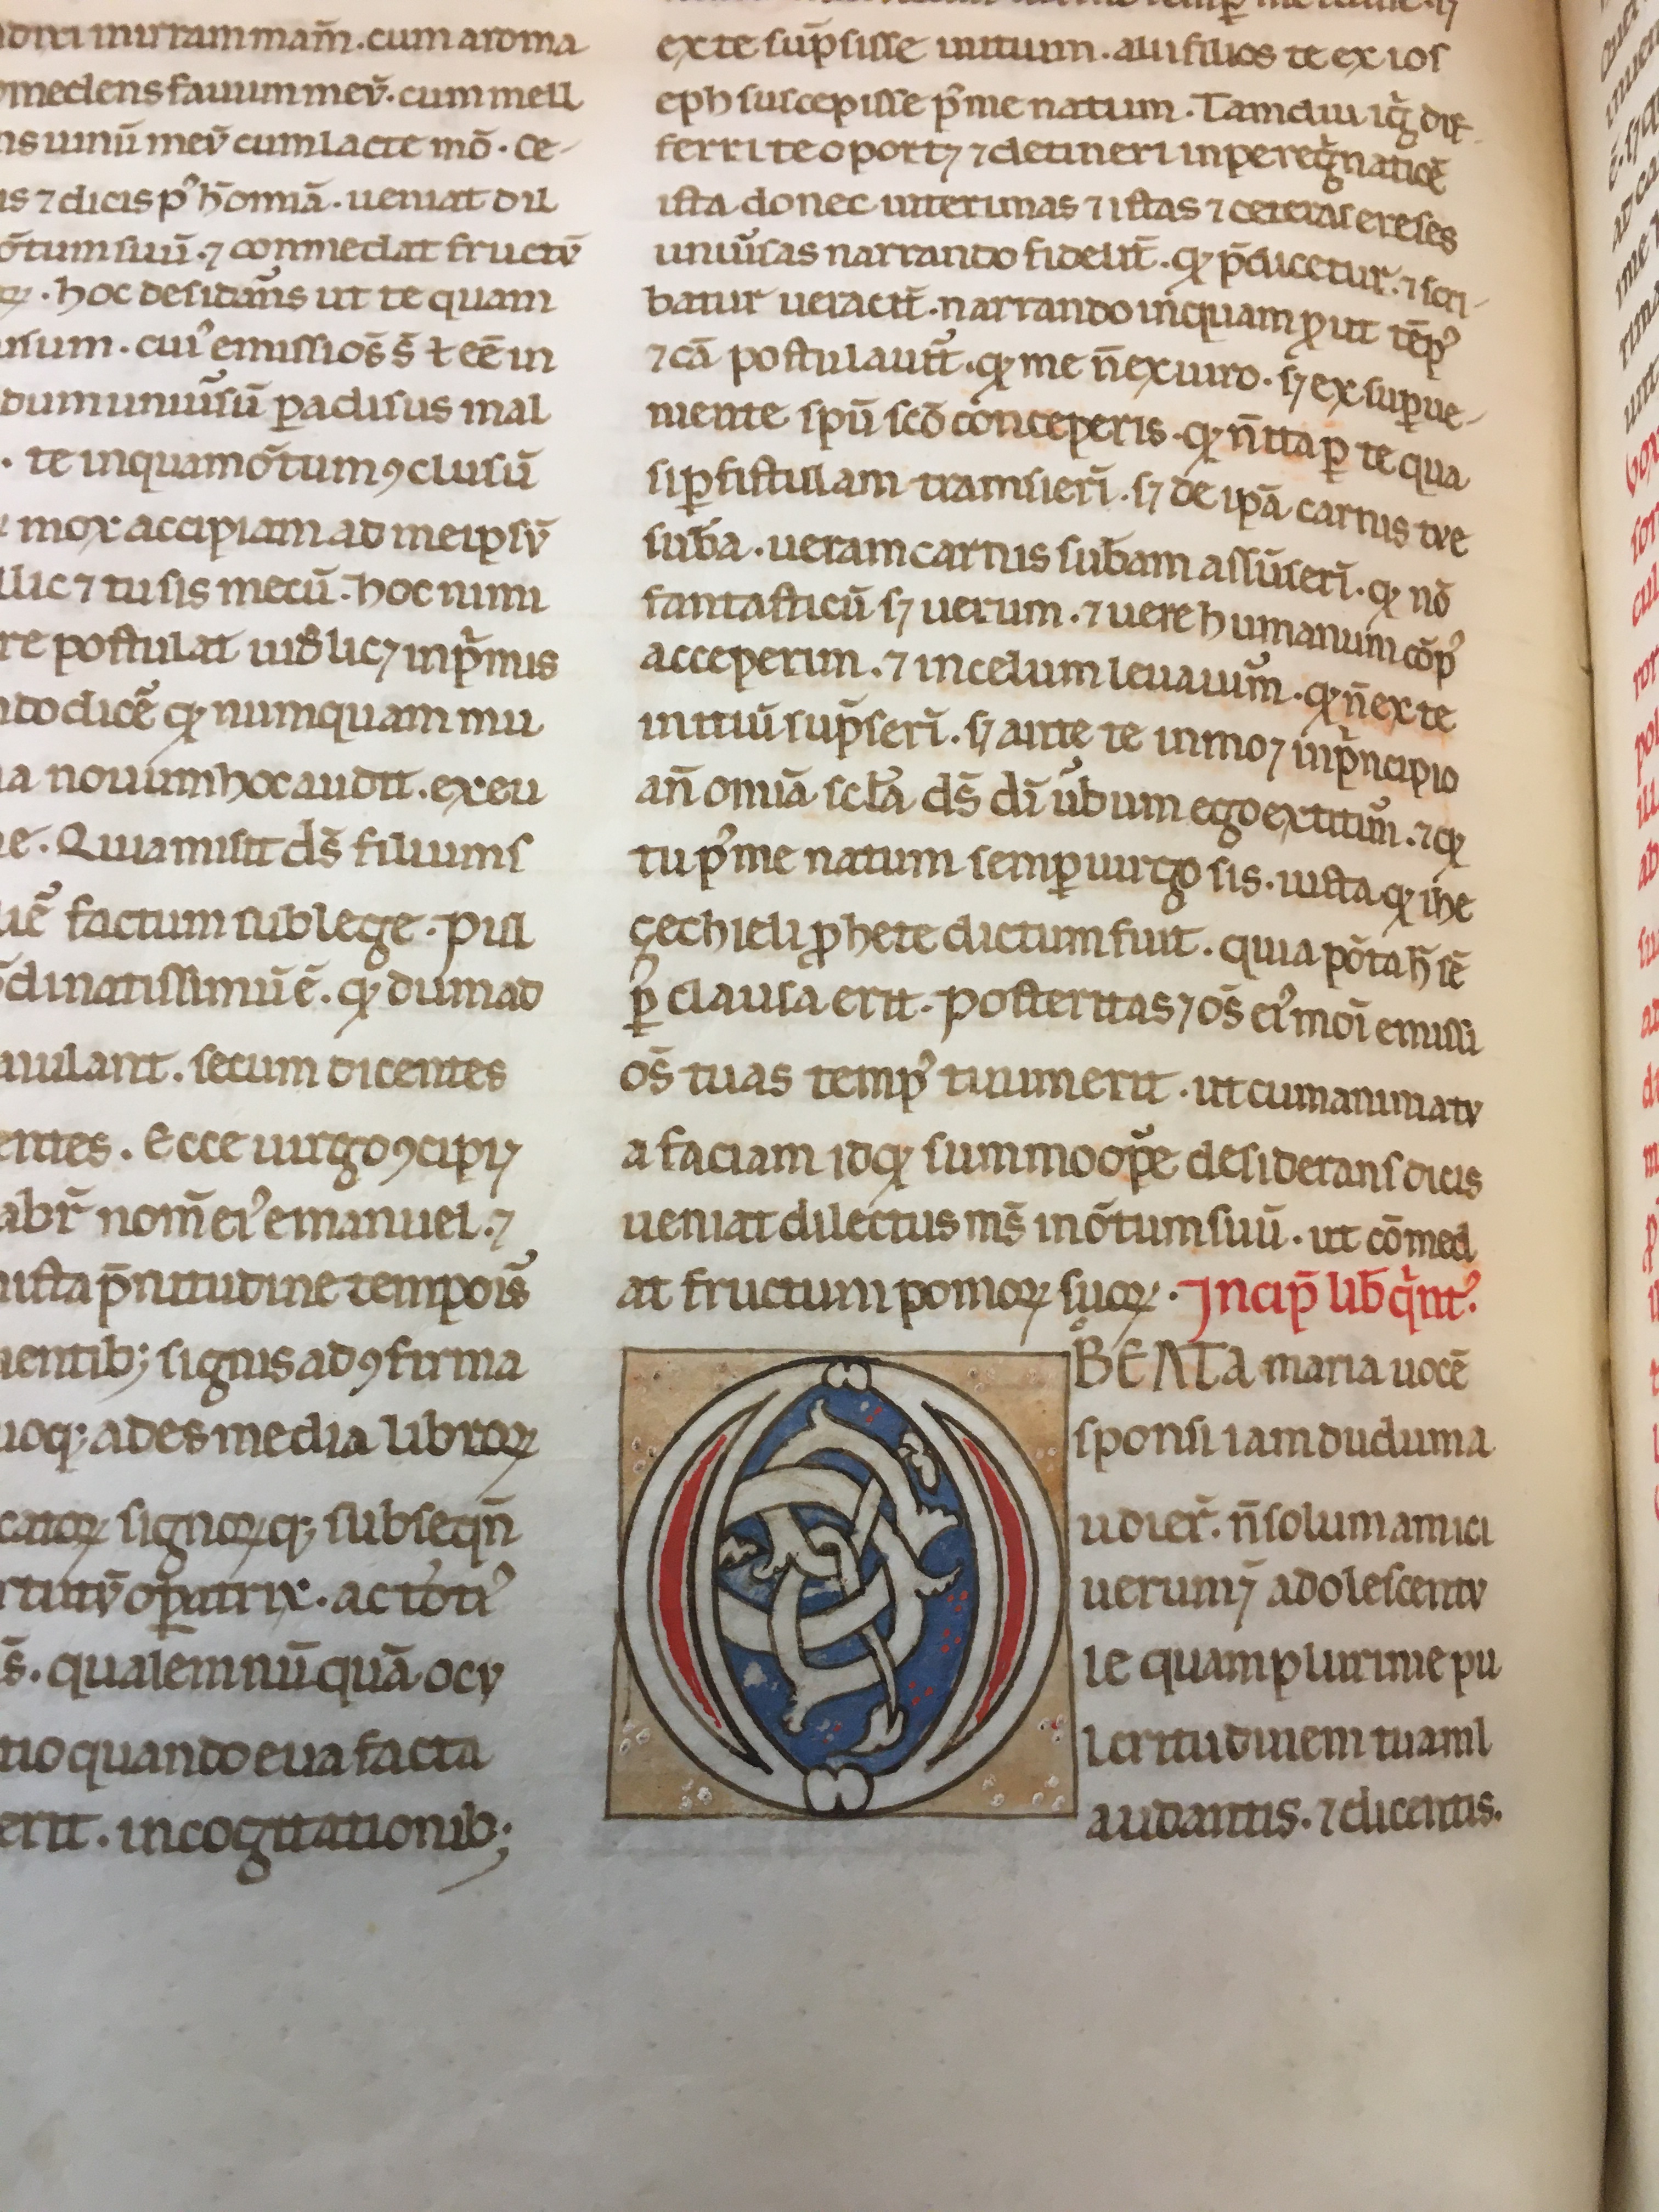 mirram mam̃. cum aroma
medens fauum meũ. cum mell
uinũ meũ cum lacte mõ. Ce-
⁊ dicis pꝰ h̃ omiã. ueniat dil
õtum suũ. ⁊ conmedat fructũ
hoc desiderans ut te quam
uisum. cuiꝰ emissiões s̃ ł eẽ in
dum uniũsũ paradisus mal
te inquam õtum ꝯclusũ
mox accipiam ad meipsũ
illic ⁊ tu sis mecũ. hoc nimi
re postulat uidelicꝫ inp̃mis
dicẽ qꝫ numquam mu
a nouum hoc audit. ex eu
e. Quia misit ds̃ filium s
factum sub lege. Pul
dinatissimũ ẽ. qꝫ dum ad
secum dicentes
entes. Ecce uirgo ꝯcipiꝫ
abr̃ nom̃ eiꝰ emanuel. ⁊
iusta p̃nitudine temporis
uentibꝫ signis ad ꝯfirma
uoqꝫ ades media libroꝝ
catoꝝ signoꝝqꝫ subseqñ
opatrix. ac totiꝰ
s̃. qualem nũquã ocu
tio quando eua facta
erit. in cogitationibꝫ
ex te sũpsisse initium. alii filios te ex ios
eph suscepisse pꝰ me natum. Tamdiu igͥ dif
ferri te oportꝫ ⁊ detineri in peregͥnatiõe
ista donec interimas ⁊ istas ⁊ ceteras ereses
uniũsas narrando fidelit̃. qꝫ p̃dicetur. ⁊ scri-
batur ueracit̃. narrando inquam ꝓut tẽpꝰ
⁊ cã postulauit̃. qꝫ me ñ ex uiro. sꝫ ex supue-
niente spũ scõ conceperis. qꝫ ñ ita ꝑ te qua
si ꝑ fistulam transieri. sꝫ de ipã carnis tue
sub̃a. ueram carnis sub̃am assũseri. qꝫ nõ
fantasticũ sꝫ uerum. ⁊ uere humanum cõpꝰ
acceperim. ⁊ in celum leuauim̃. qꝫ ñ ex te
initiũ sũpseri. sꝫ ante te inmoꝫ inp̃ncipio
añ omiã sc̃la ds̃ di ũbum ego extitim̃. ⁊ qꝫ
tu pꝰ me natum semꝑ uirgo sis. iuxta qꝫ ihe
çechieli ꝓphete dictum fuit. quia põta h̃ sẽ
ꝑ clausa erit. Posteritasꝫ os̃ eiꝰ moi emissi
os̃ tuas tempꝰ tuum erit. ut cum animatu
a faciam idqꝫ summo ope desiderans dicis
ueniat dilectus ms̃ in õtum suũ. ut cõmed
at fructum pomoꝝ suoꝝ. Incip̃ lib̃ qͥntꝰ.
O BEATA maria uocẽ
sponsi iam dudum a
udier̃. ñ solum amici
uerumꝫ adolescentu
le quamplurime pu
lcritudinem tuam l
audantis. ⁊ dicentis.